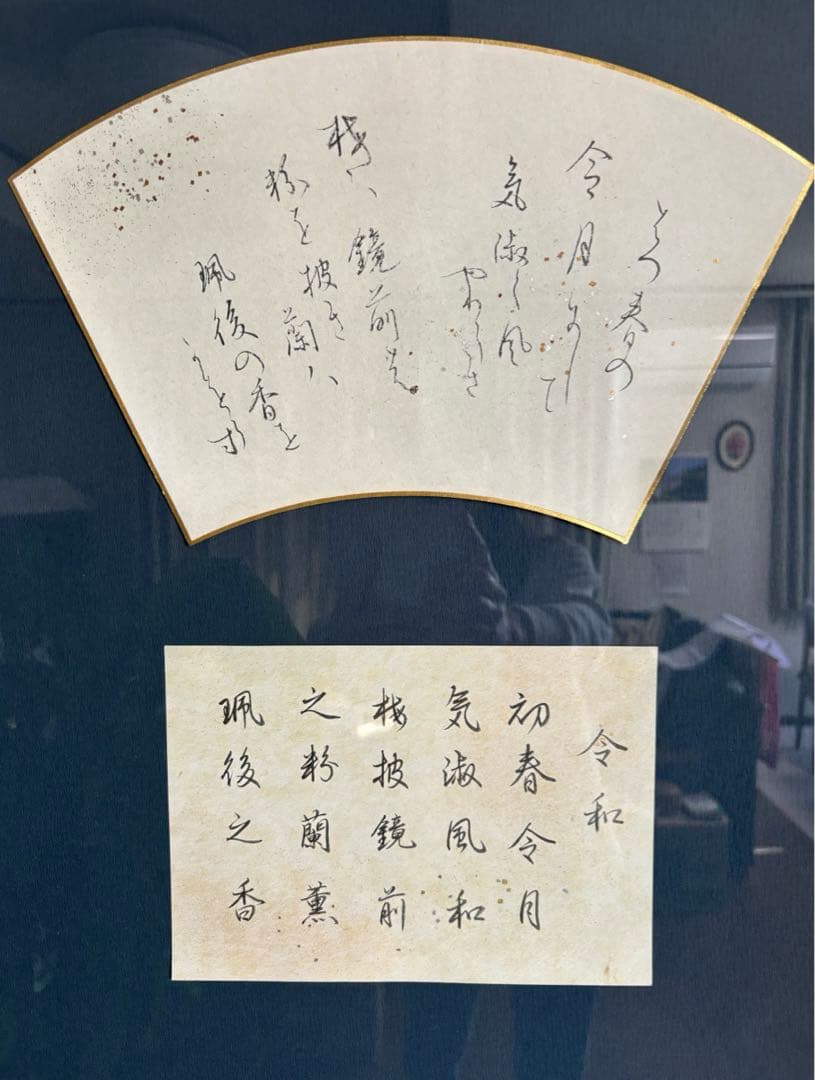 はつ春の
令月にして
気淑く風
やわらき
梅ハ鏡前の
粉を披き蘭ハ
珮後の香を
かをらす
令和
初春令月
気淑風和
梅披鏡前
之粉蘭薫
珮後之香